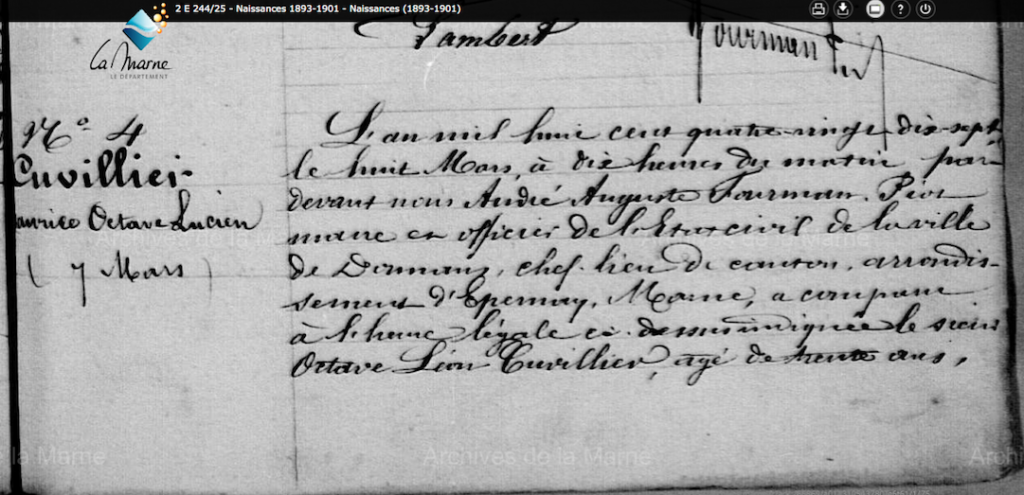 2 E 244/25 - Naissances 1893-1901 - Naissances (1893-1901)
La Marne
LE DÉPARTEMENT
Lambert
Fourman
N° 4
Cuvillier
Maurice Octave Lucien
( 7 Mars )
L'an mil huit cent quatre-vingt dix-sept
le huit Mars, à dix heures du matin par
devant nous André Auguste Fourman
maire et officier de l'Etat civil de la ville
de Dormans, chef-lieu de canton, arrondis-
sement d'Epernay, Marne, a comparu
à l'heure légale ci-dessus indiquée le sieur
Octave Léon Cuvillier, agé de trente ans,
Archives de la Marne
de la Marne
Archives de la Marne
Archi